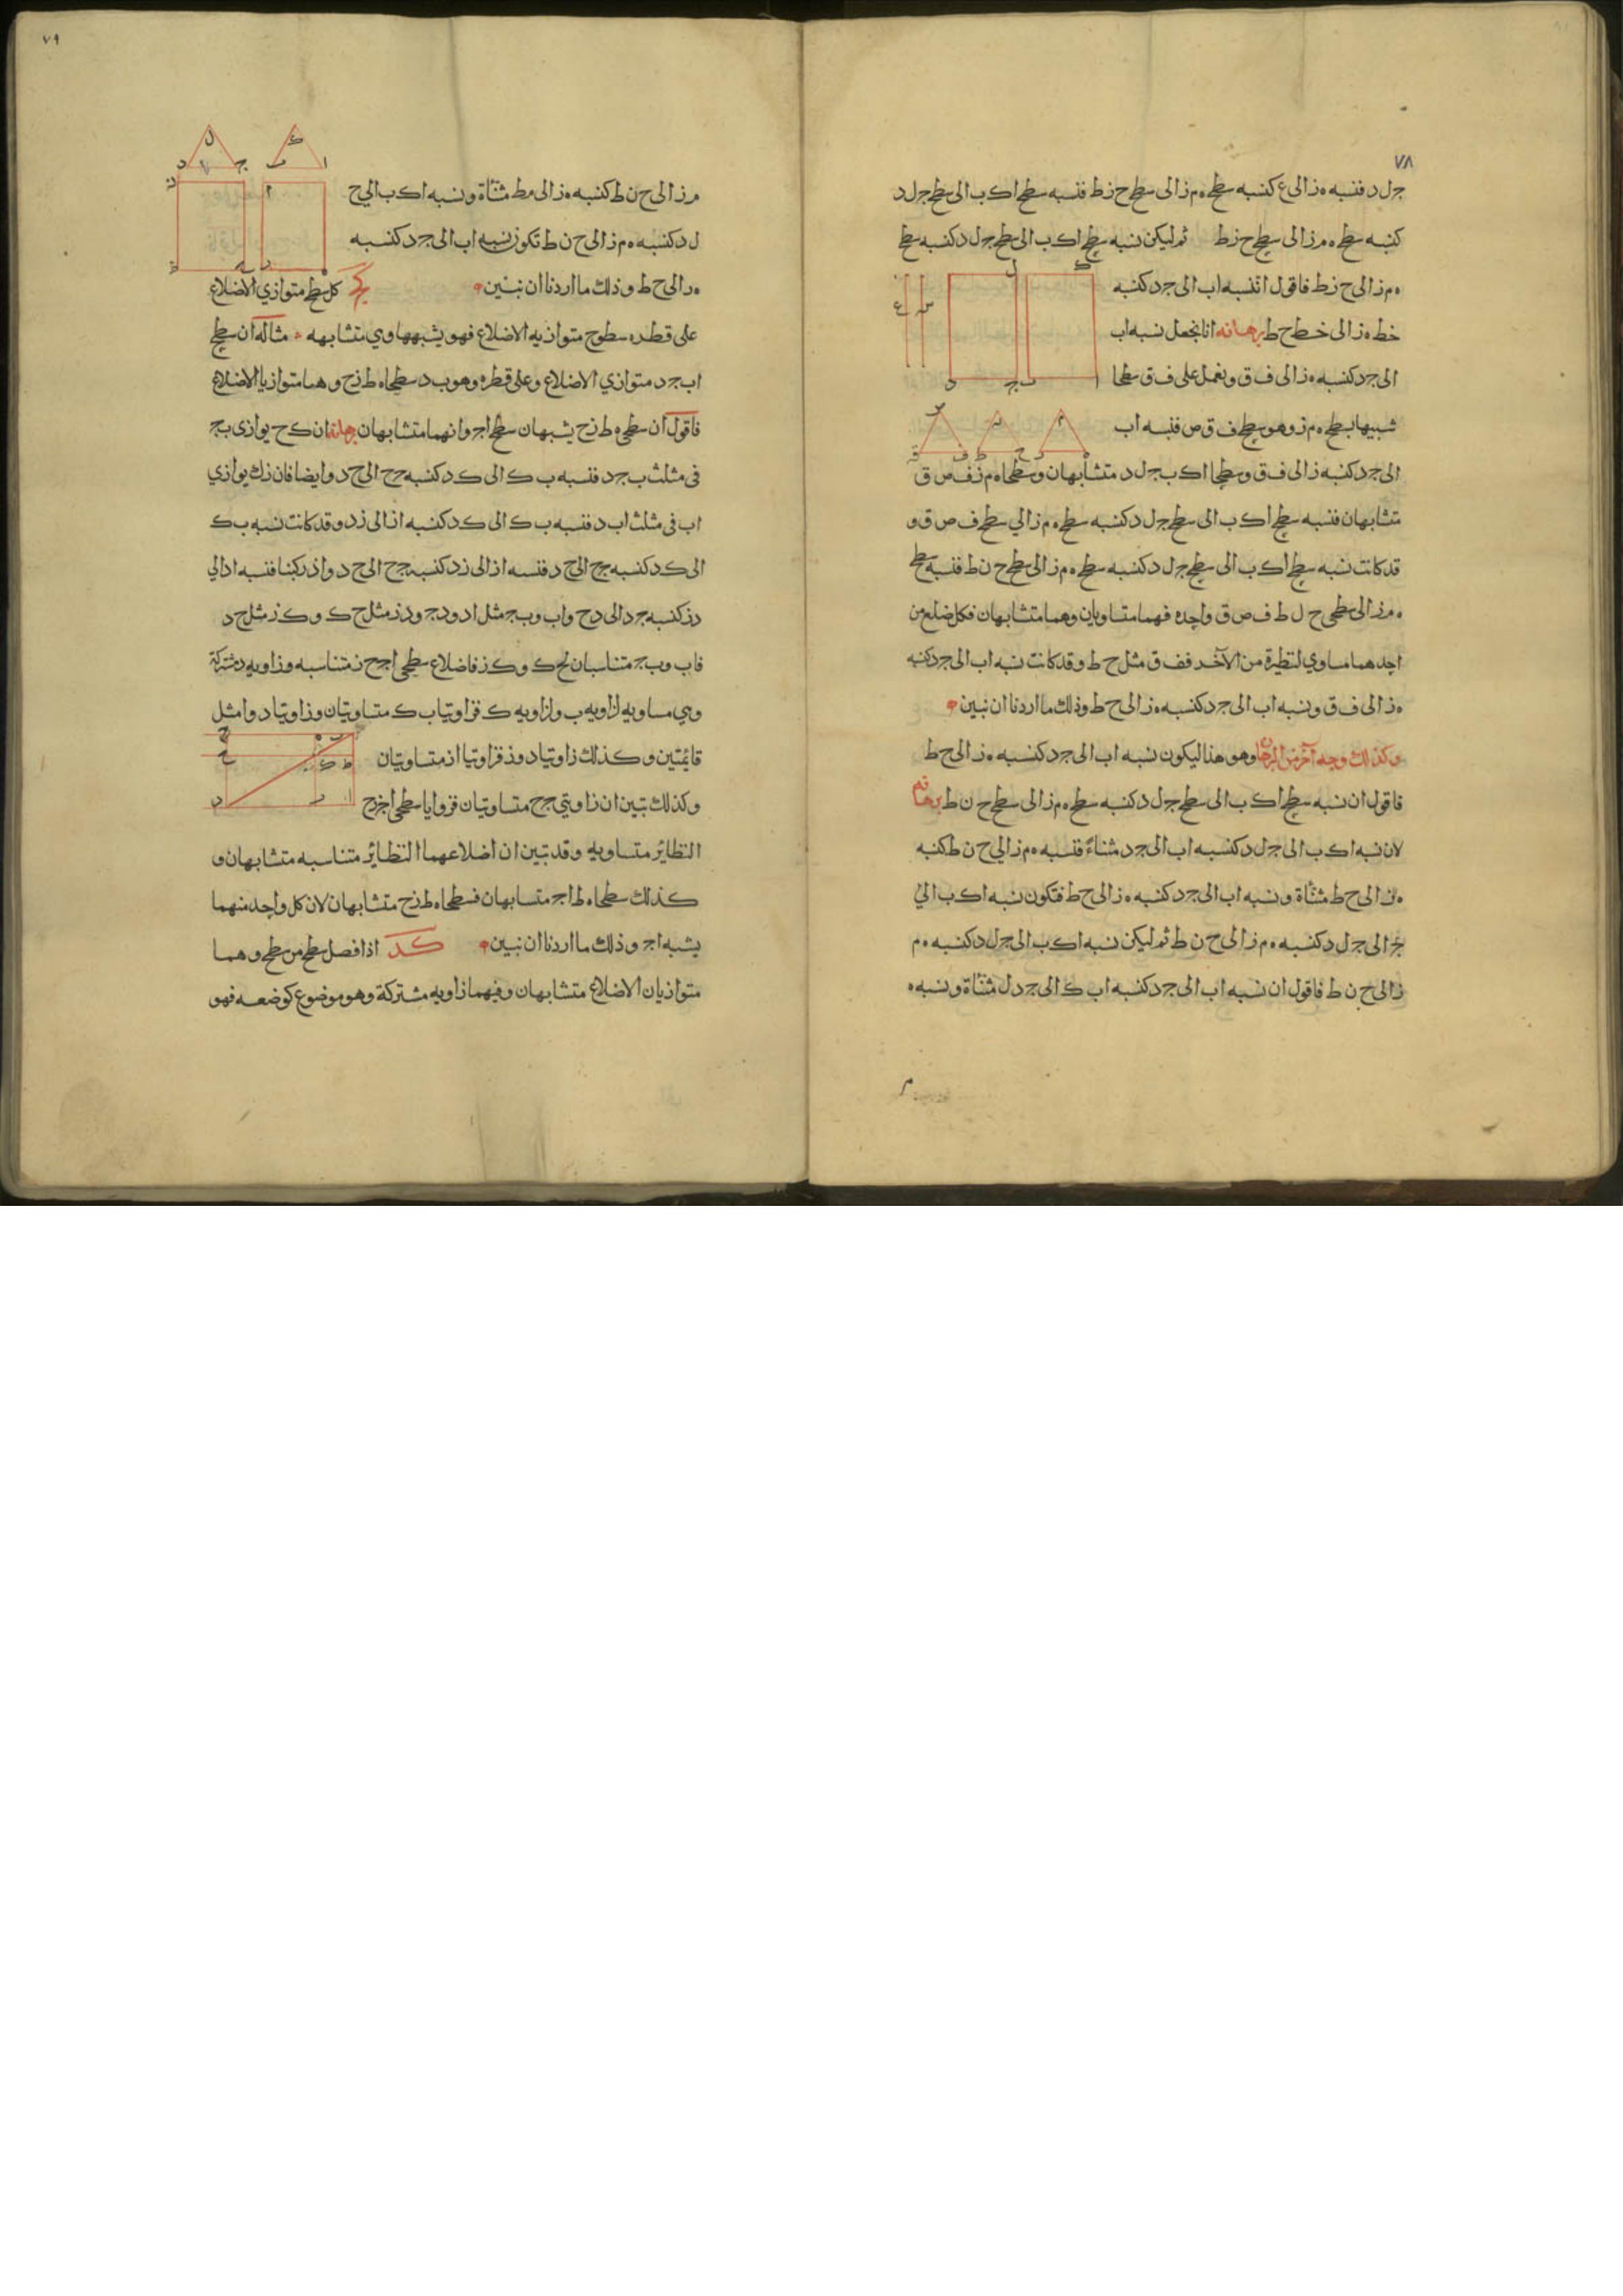 ٧٨
جل د فنسبه ه ز الى ع كنسبه سطح ه م ز الى سطح ح ز ط فنسبه سطح ا ك ب الى سطح جل د
كنسبه سطح ه م ز الى سطح ح ز ط ثم ليكن نسبه سطح ا ك ب الى سطح جل د كنسبه سطح
ه م ز الى ح ز ط فاقول ان نسبه اب الى جد كنسبه
خط ه ز الى خط ح ط برهانه انا نجعل نسبه اب
الى جد كنسبه ه ز الى ف ق ونعمل على ف ق سطحا
شبيها بسطح ه م ز وهو سطح ف ق ص فنسبه اب
الى جد كنسبه ز الى ف ق وسطحا ا ك ب جل د متشابهان وسطحا ه م ز ف ص ق
متشابهان فنسبه سطح ا ك ب الى سطح جل د كنسبه سطح ه م ز الي سطح ف ص ق و
قد كانت نسبه سطح ا ك ب الى سطح جل د كنسبه سطح ه م ز الى سطح ح ن ط فنسبه سطح
ه م ز الى سطحي ح ل ط ف ص ق واحده فهما متساويان وهما متشابهان فكل ضلع من
احدهما مساوي لنظيرة من الآخر فف ق مثل ح ط وقد كانت نسبه اب الى جد كنسبه
ه ز الى ف ق ونسبه اب الى جد كنسبه ه ز الى ح ط وذلك ما اردنا ان نبين
وكذلك وجه آخر من البرهان وهو هذا ليكون نسبه اب الى جد كنسبه ه ز الى ح ط
فاقول ان نسبه سطح ا ك ب الى سطح جل د كنسبه سطح ه م ز الى سطح ح ن ط برهانه
لان نسبه ا ك ب الى جل د كنسبه اب الى جد مثناة فنسبه ه م ز الي ح ن ط كنسبه
ه ز الى ح ط مثناة ونسبه اب الى جد كنسبه ه ز الى ح ط فتكون نسبه ا ك ب الي
الى جل د كنسبه ه م ز الى ح ن ط ثم ليكن نسبه ا ك ب الى جل د كنسبه ه م
ز الى ح ن ط فاقول ان نسبه اب الى جد كنسبه اب ك الى جد ل مثناة ونسبه ه
٧٩
م ز الى ح ن ط كنسبه ه ز الى ط مثناة ونسبه ا ك ب الي ج
ل د كنسبه ه م ز الى ح ن ط تكون نسبه اب الى جد كنسبه
ه ز الى ح ط وذلك ما اردنا ان نبين كج كل سطح متوازي الاضلاع
على قطره سطوح متوازيه الاضلاع فهو يشبهها وهي متشابهه مثاله ان سطح
اب جد متوازي الاضلاع وعلى قطره وهو ب د سطحا ه ط ز ح وهما متوازيا الاضلاع
فاقول ان سطحي ه ط ز ح يشبهان سطح اج وانهما متشابهان برهانه ان ك ح يوازى بج
فى مثلث ب جد فنسبه ب ك الى ك د كنسبه جح الى ح د وايضا فان زك يوازي
اب فى مثلث اب د فنسبه ب ك الى ك د كنسبه از الى زد وقد كانت نسبه ب ك
الى ك د كنسبه جح الى ح د فنسبه از الى زد كنسبه جح الى ح د واذ ركبنا فنسبه اد الى
دز كنسبه جد الى دح واب وبج مثل اد ودج ودز مثل ح ك وك ز مثل ح د
فاب وبج متناسبان لح ك وك ز فاضلاع سطحي اج ح ز متناسبه وزاويه د مشتركة
وهي مساويه لزاويه ب ولزاويه ك فزاويتا ب ك متساويتان وزاويتا د وا مثل
قايمتين وكذلك زاويتا د وز فزاويتا از متساويتان
وكذلك تبين ان زاويتي جح متساويتان فزوايا سطحي اج زح
النظائر متساويه وقد تبين ان اضلاعهما النظائر متناسبه متشابهان و
كذلك سطحا ه ط اج متشابهان فسطحا ه ط زح متشابهان لان كل واحد منهما
يشبه اج وذلك ما اردنا ان نبين كد اذا فصل سطح من سطح وهما
متوازيان الاضلاع متشابهان وفيهما زاويه مشتركة وهو موضوع كوضعه فهو